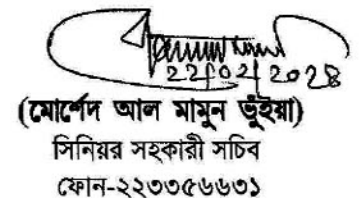 22/02/2028
(মোর্শেদ আল মামুন ভুঁইয়া)
সিনিয়র সহকারী সচিব
ফোন-২২৩৩৫৬৬৩১